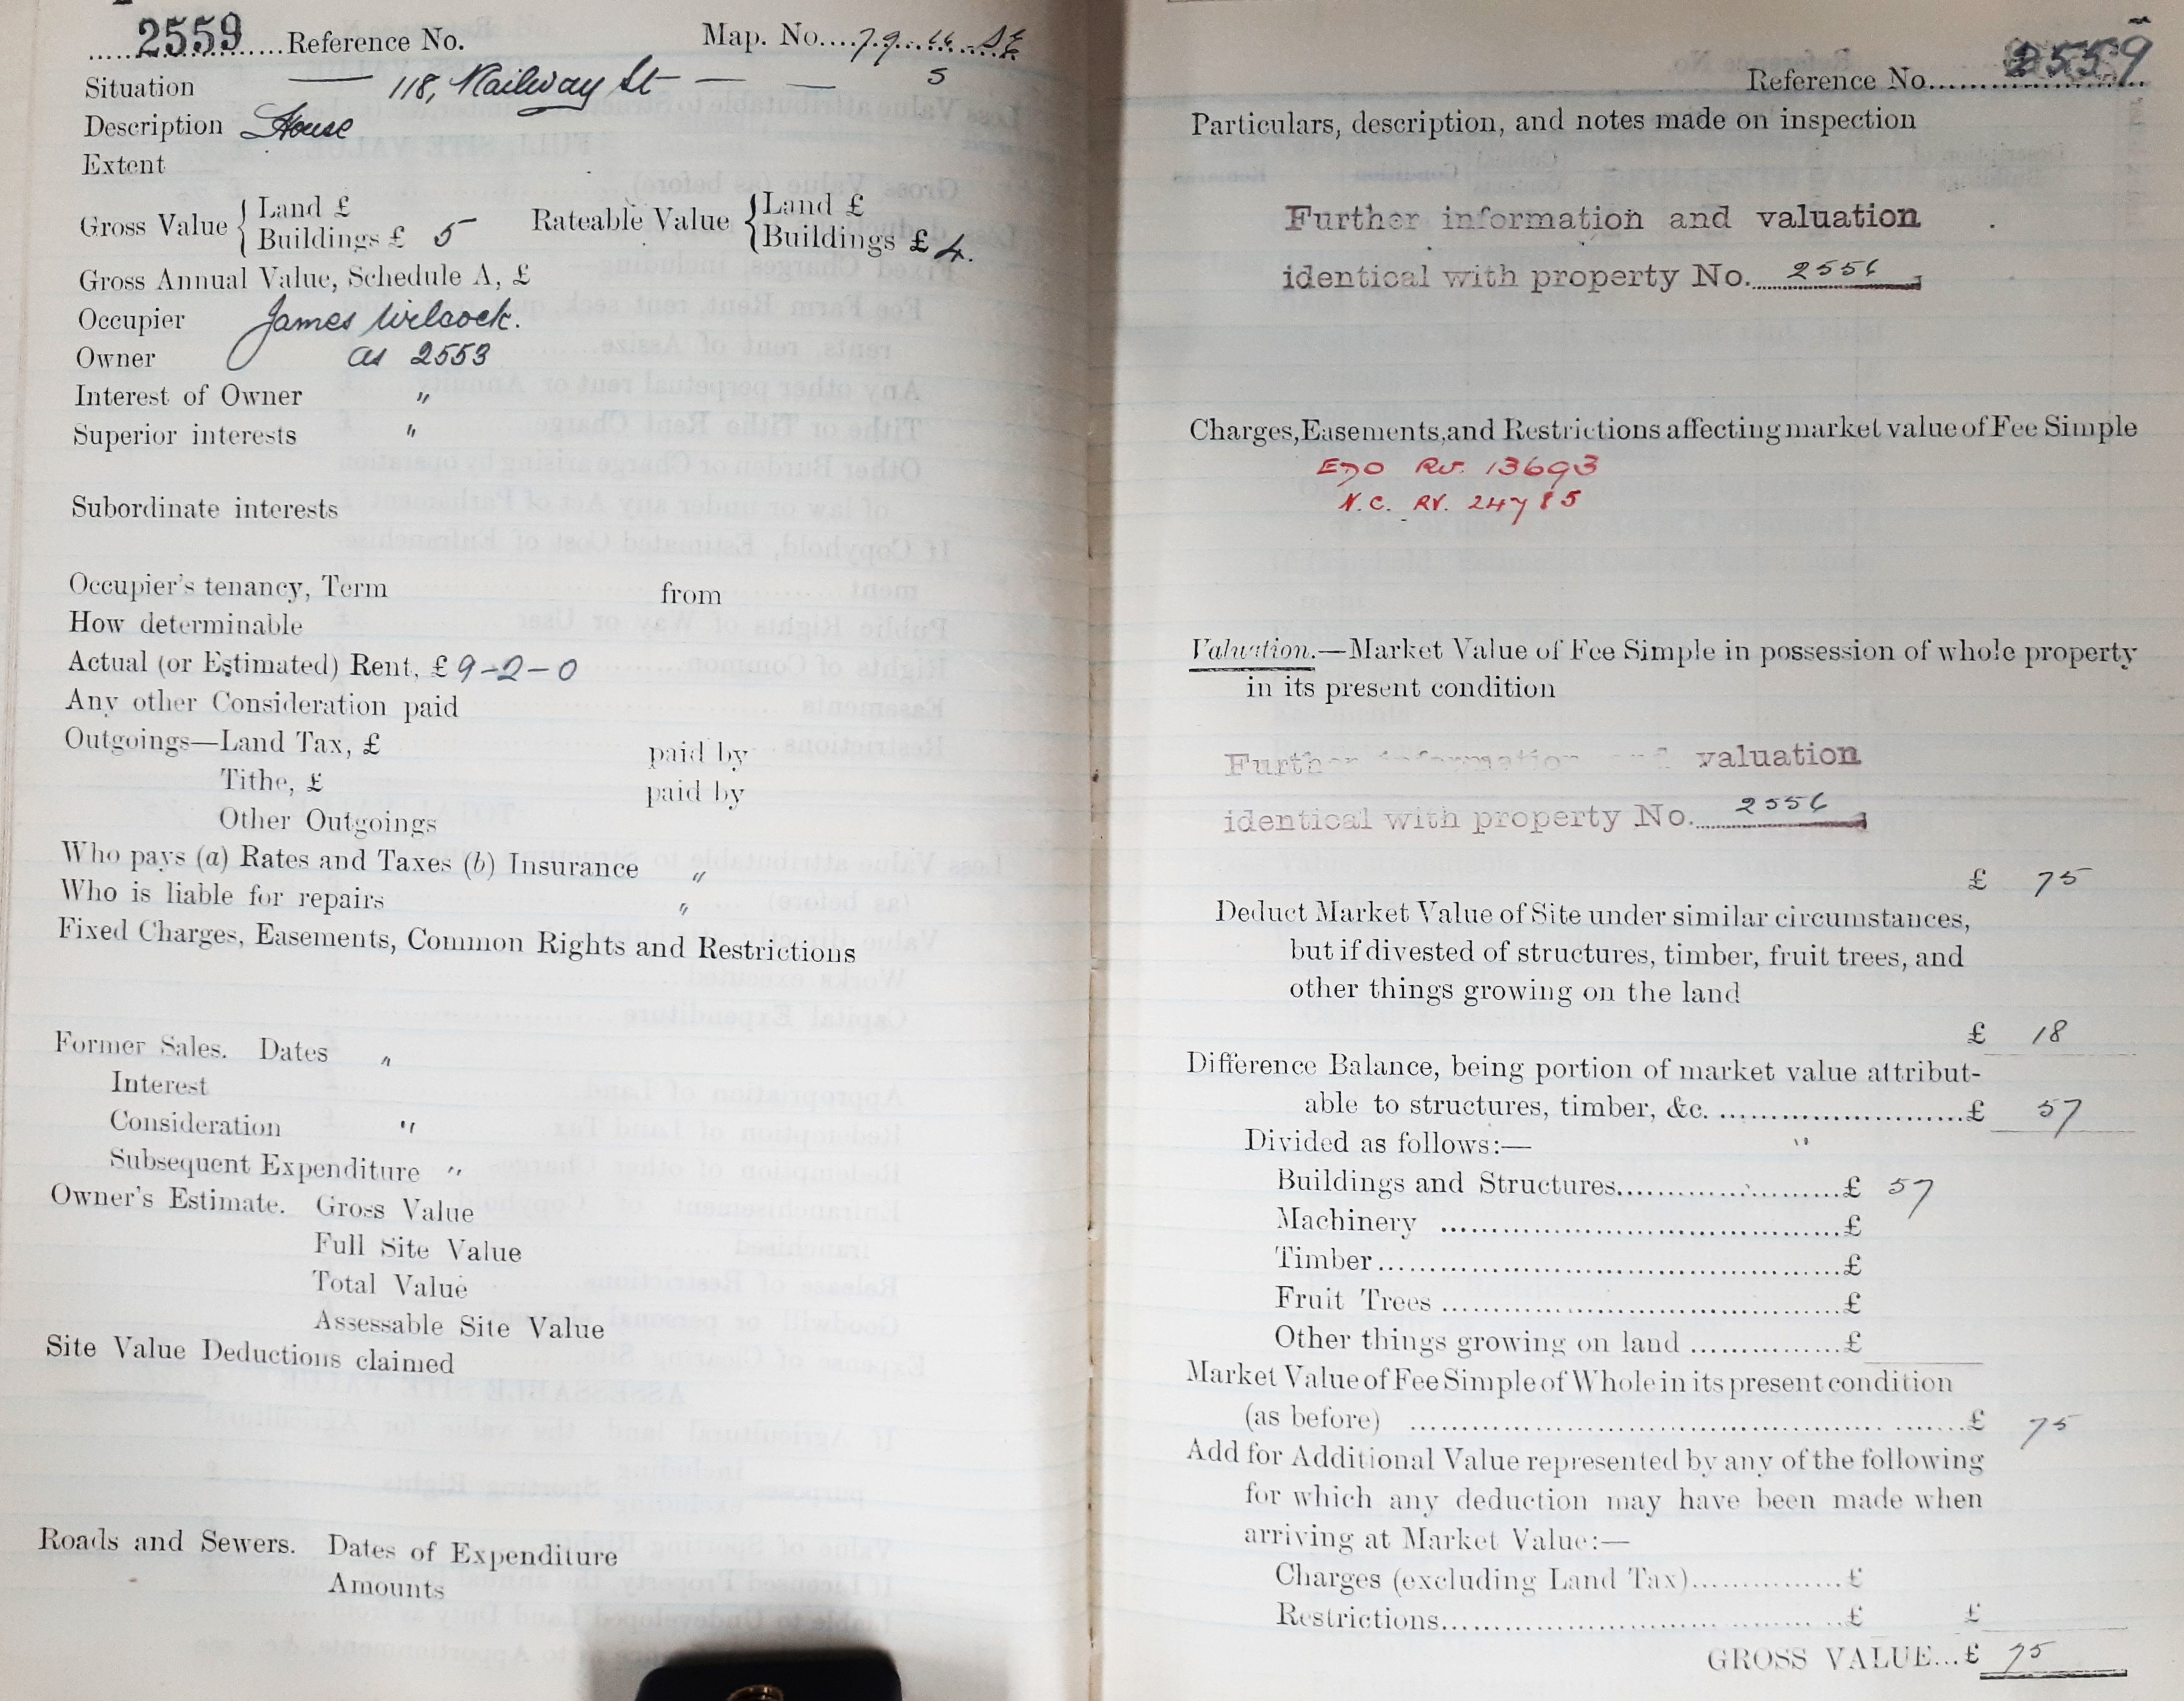 2559 Reference No. Map. No. 79. 16. SE
5
Situation — 118, Railway St — —
Description House
Extent
Gross Value { Land £
Buildings £ 5
Rateable Value { Land £
Buildings £ 4.
Gross Annual Value, Schedule A, £
Occupier James Wilcock.
Owner as 2553
Interest of Owner "
Superior interests "
Subordinate interests
Occupier's tenancy, Term from
How determinable
Actual (or Estimated) Rent, £ 9-2-0
Any other Consideration paid
Outgoings—Land Tax, £ paid by
Tithe, £ paid by
Other Outgoings
Who pays (a) Rates and Taxes (b) Insurance "
Who is liable for repairs "
Fixed Charges, Easements, Common Rights and Restrictions
Former Sales. Dates "
Interest
Consideration "
Subsequent Expenditure "
Owner's Estimate. Gross Value
Full Site Value
Total Value
Assessable Site Value
Site Value Deductions claimed
Roads and Sewers. Dates of Expenditure
Amounts
Reference No. 2559
Particulars, description, and notes made on inspection
Further information and valuation
identical with property No. 2556
Charges, Easements, and Restrictions affecting market value of Fee Simple
RV. 13693
N.C. RV. 24785
Valuation.—Market Value of Fee Simple in possession of whole property
in its present condition
Further information and valuation
identical with property No. 2556
£ 75
Deduct Market Value of Site under similar circumstances,
but if divested of structures, timber, fruit trees, and
other things growing on the land
£ 18
Difference Balance, being portion of market value attribut-
able to structures, timber, &c. £ 57
Divided as follows:— "
Buildings and Structures £ 57
Machinery £
Timber £
Fruit Trees £
Other things growing on land £
Market Value of Fee Simple of Whole in its present condition
(as before) £ 75
Add for Additional Value represented by any of the following
for which any deduction may have been made when
arriving at Market Value:—
Charges (excluding Land Tax) £
Restrictions £ £
GROSS VALUE... £ 75